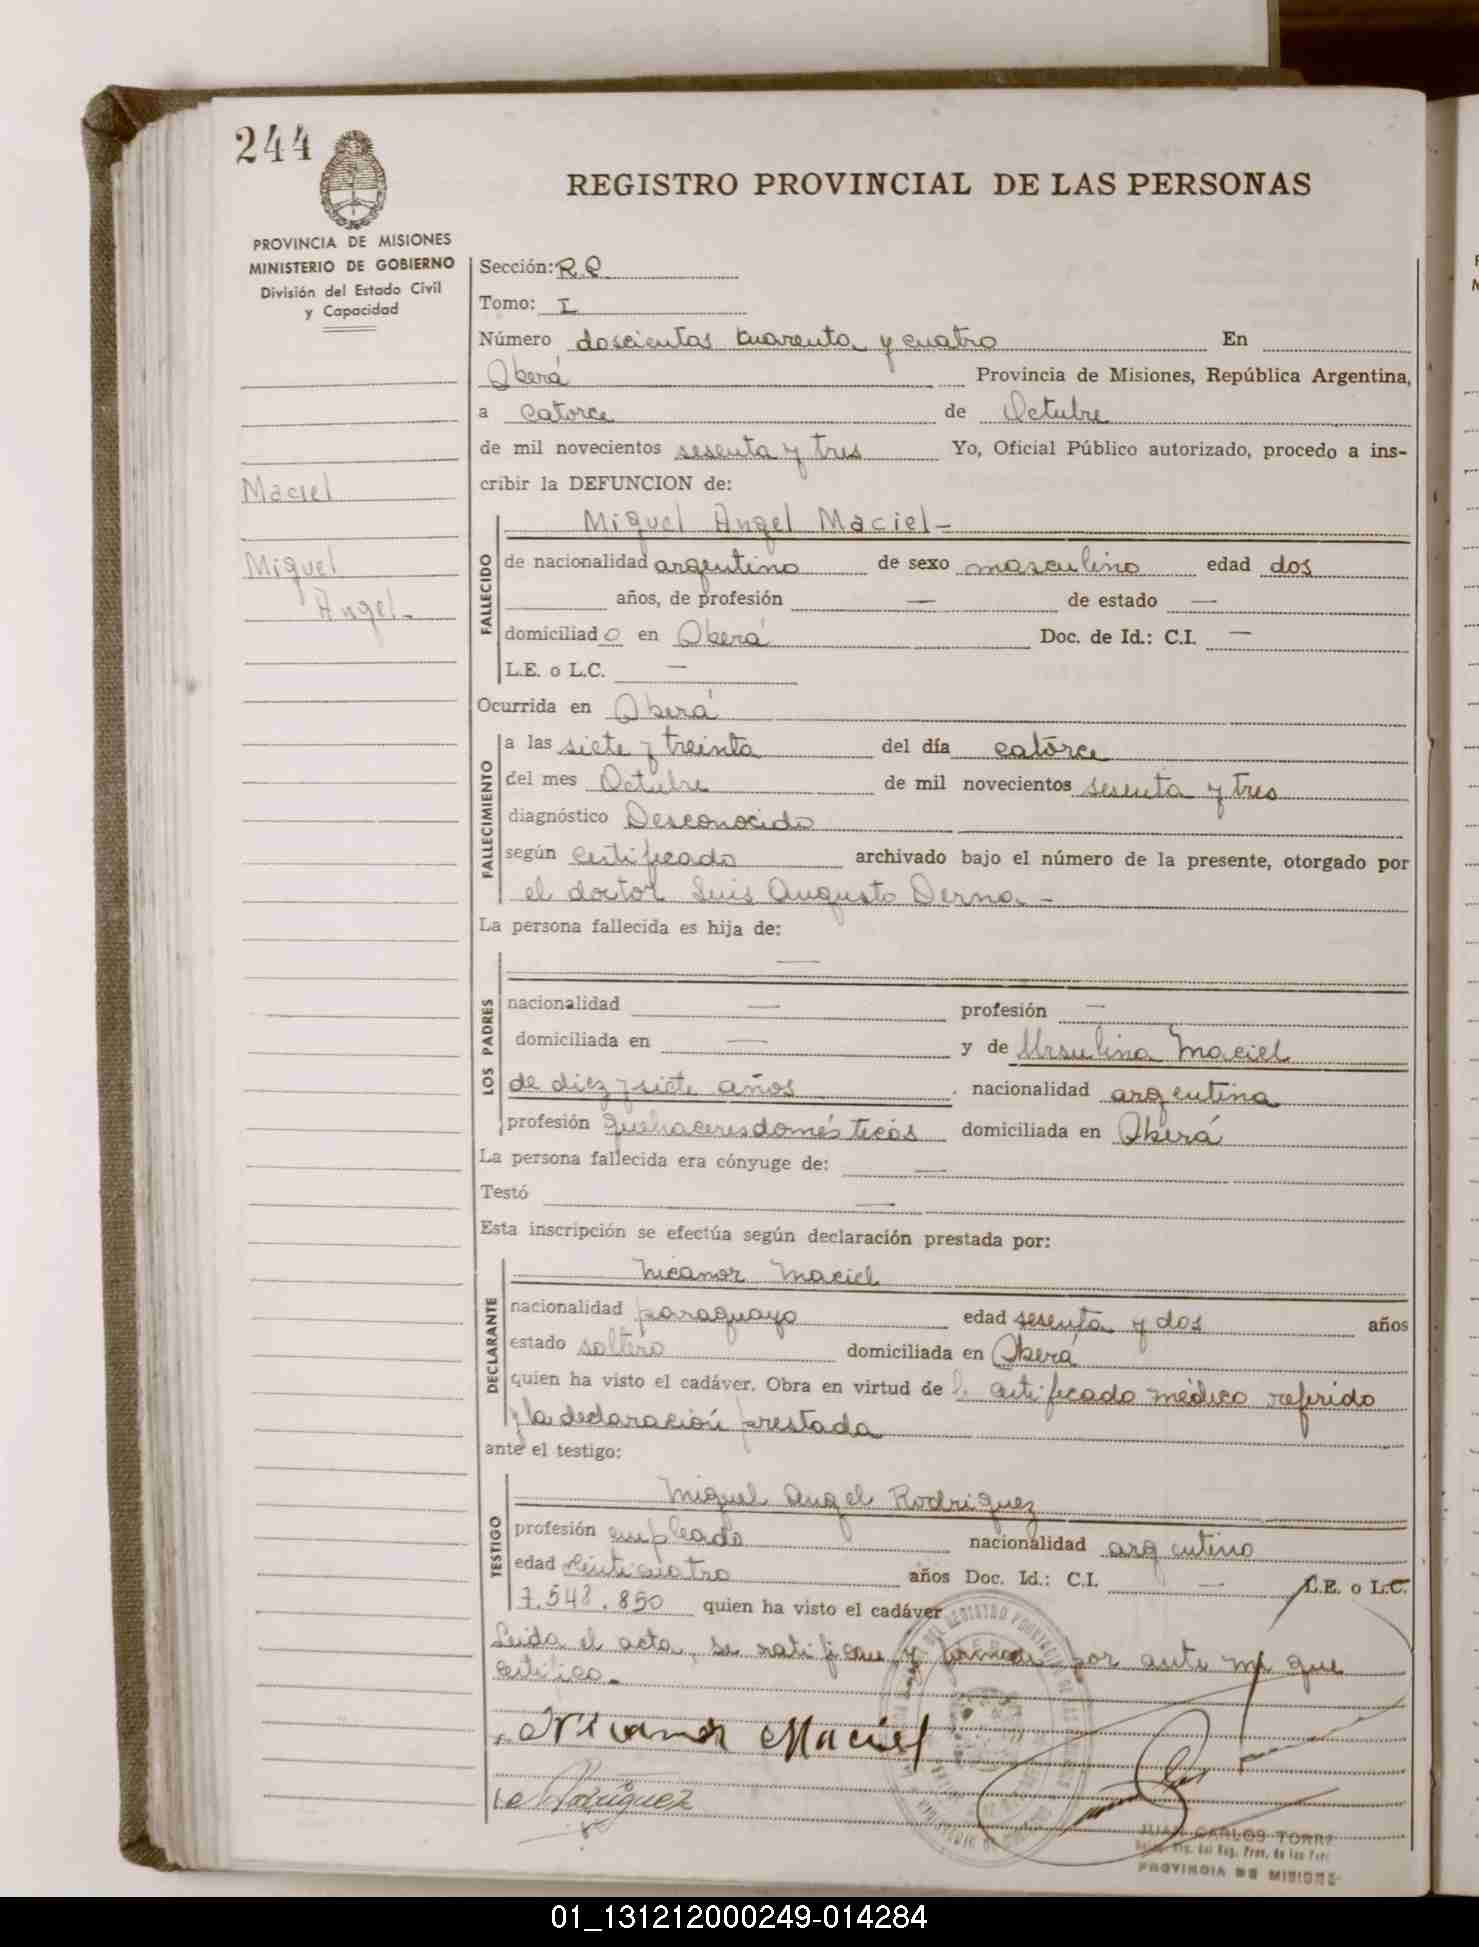 244
REGISTRO PROVINCIAL DE LAS PERSONAS
PROVINCIA DE MISIONES
MINISTERIO DE GOBIERNO
División del Estado Civil
y Capacidad
Maciel
Miguel
Angel-
Sección: R.P.
Tomo: I
Número doscientos cuarenta y cuatro En
Oberá Provincia de Misiones, República Argentina,
a catorce de Octubre
de mil novecientos sesenta y tres Yo, Oficial Público autorizado, procedo a ins-
cribir la DEFUNCION de:
FALLECIDO
Miguel Angel Maciel-
de nacionalidad argentino de sexo masculino edad dos
años, de profesión — de estado —
domiciliado en Oberá Doc. de Id.: C.I. —
L.E. o L.C. —
Ocurrida en Oberá
FALLECIMIENTO
a las siete y treinta del día catorce
del mes Octubre de mil novecientos sesenta y tres
diagnóstico Desconocido
según certificado archivado bajo el número de la presente, otorgado por
el doctor Luis Augusto Derna-
La persona fallecida es hija de:
LOS PADRES
—
nacionalidad — profesión —
domiciliada en — y de Ursulina Maciel
de diez y siete años, nacionalidad argentina
profesión quehaceres domésticos domiciliada en Oberá
La persona fallecida era cónyuge de: —
Testó —
Esta inscripción se efectúa según declaración prestada por:
DECLARANTE
Nicanor Maciel
nacionalidad paraguayo edad sesenta y dos años
estado soltero domiciliada en Oberá
quien ha visto el cadáver. Obra en virtud de certificado médico referido
y la declaración prestada
ante el testigo:
TESTIGO
Miguel Angel Rodriguez
profesión empleado nacionalidad argentino
edad veinticuatro años Doc. Id.: C.I. — L.E. o L.C.
7.548.850 quien ha visto el cadáver
Leida el acta, se ratifican y firman por ante mí que
certifico.-
Nicanor Maciel
Rodriguez
JUAN CARLOS TORR
PROVINCIA DE MISIONES
01_131212000249-014284